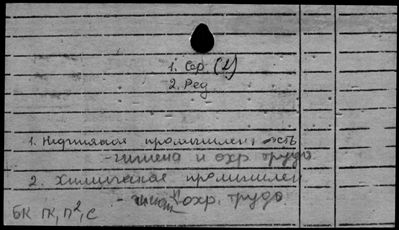 1. Сер. (2)
2. Ред
1. Нефтяная промышлен ность
- гигиена и охр. труда
2. Химическая промышлен
- гигиен и охр. труда
БК ПК, П², С